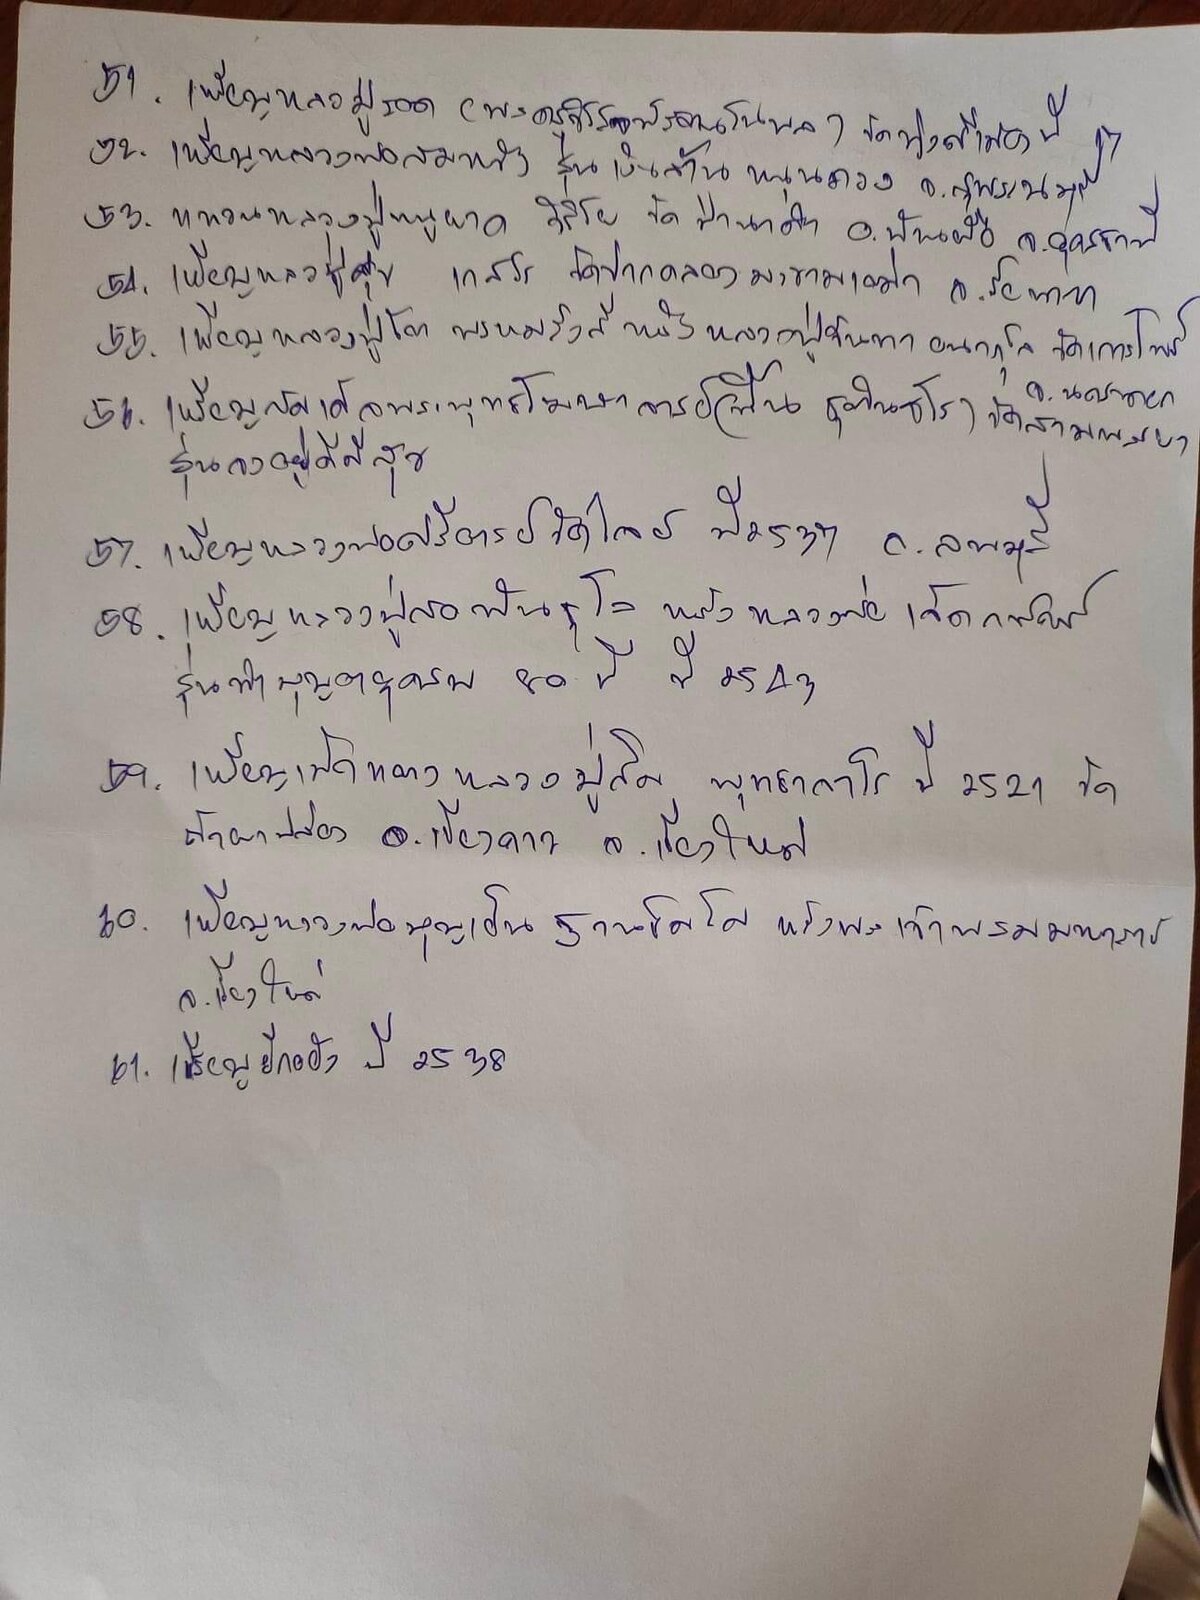 51. เหรียญหลวงปู่รอด ( วัดทุ่งศรีเมือง ปี 17
52. เหรียญหลวงพ่อสมหวัง รุ่นเงินล้าน หนุนดวง จ.สุพรรณบุรี
53. หลวงปู่หนูผาด วัดป่านาดี อ.บ้านผือ จ.อุดรธานี
54. เหรียญหลวงปู่ศุข เกสโร วัดปากคลองมะขามเฒ่า จ.ชัยนาท
55. เหรียญหลวงปู่โต พรหมรังสี หลังหลวงปู่จันทา อนากุโล วัดเการโพธิ์
จ.นครนายก
56. เหรียญสมเด็จพระพุทธโฆษาจารย์(ฟื้น ชุตินฺธโร) วัดสามพระยา
รุ่นจงอยู่ดีมีสุข
57. เหรียญหลวงพ่อศรีอารย์วัดไลย์ ปี 2537 จ.ลพบุรี
58. เหรียญหลวงปู่สอ พันธุโล หลังหลวงพ่อเจ็ดกษัตริย์
รุ่นทำบุญอายุครบ 80 ปี ปี 2543
59. เหรียญเม็ดแตงหลวงปู่สิม พุทธาจาโร ปี 2521 วัด
ถ้ำผาปล่อง อ.เชียงดาว จ.เชียงใหม่
60. เหรียญหลวงพ่อบุญเย็น ฐานธัมโม หลังพระเจ้าพรหมมหาราช
จ.เชียงใหม่
61. เหรียญยี่กอฮง ปี 2538